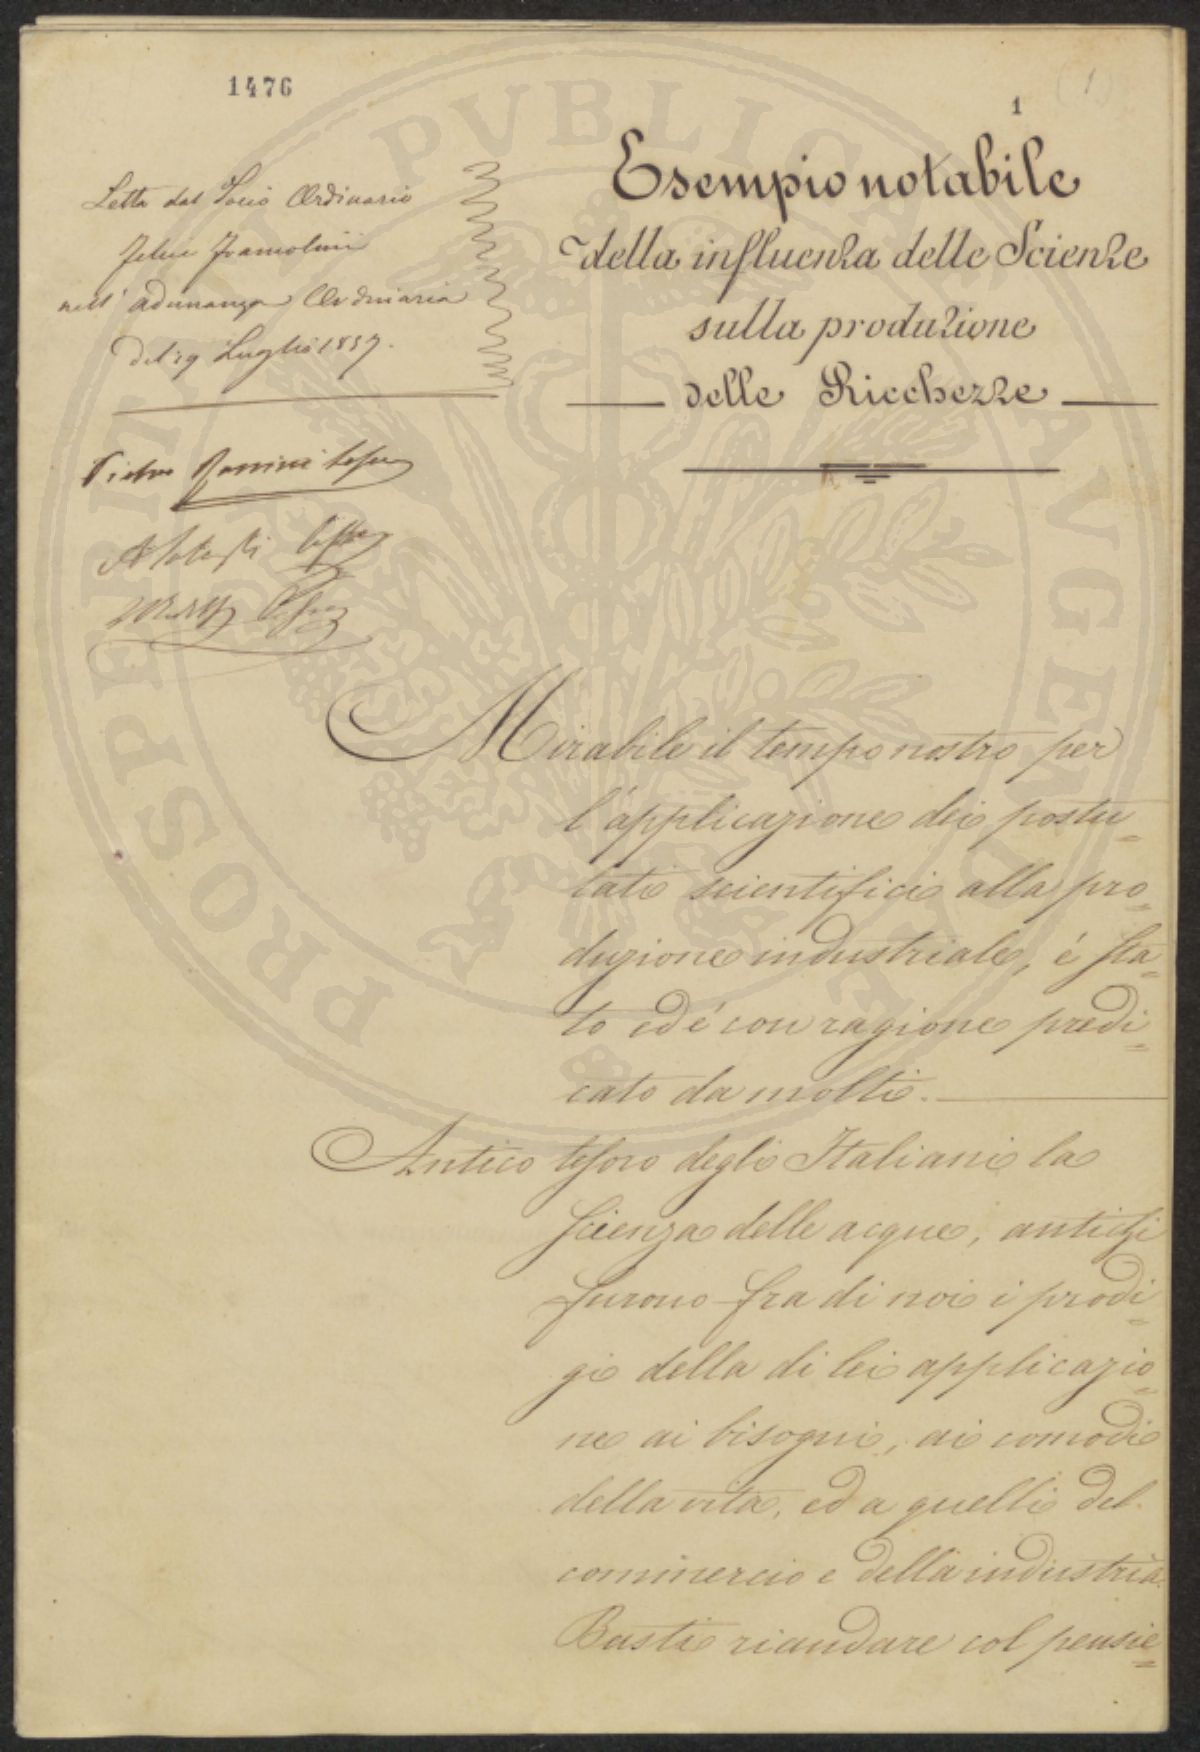 1476
1
(1)
Letta dal Socio Ordinario
Felice Francolini
nell' adunanza Ordinaria
del 19 Luglio 1857.
Esempio notabile
della influenza delle Scienze
sulla produzione
delle Ricchezze
Pietro
Mirabile il tempo nostro per
l'applicazione dei postu=
lati scientifici alla pro=
duzione industriale, é sta=
to ed é con ragione predi=
cato da molti.
Antico tesoro degli Italiani la
scienza delle acque, antichi
furono fra di noi i prodi=
gi della di lei applicazio=
ne ai bisogni, ai comodi
della vita, ed a quelli del
commercio e della industria.
Basti riandare col pensie=
PROSPERITATI PVBLICAE AVGENDAE